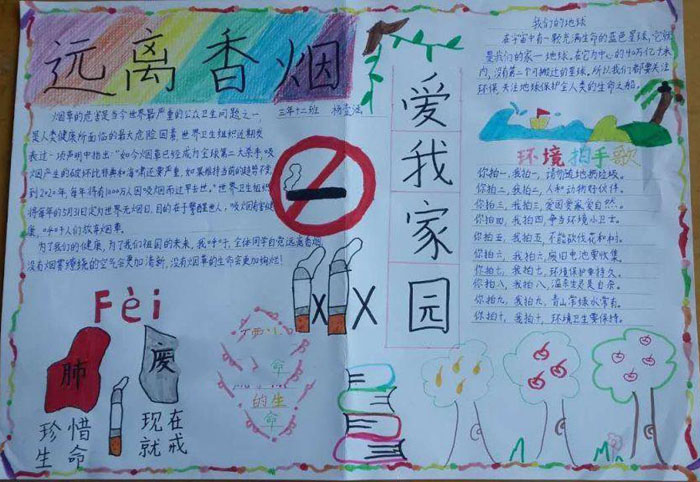 远离香烟
三年十二班
烟草的危害是当今世界最严重的公众卫生问题之一
是人类健康所面临的最大危险因素,世界卫生组织近期发
表过一项声明中指出:"如今烟草已经成为全球第二大杀手,吸
烟产生的破坏比非典和海啸还要严重,如果维持当前的趋势不变,
到2020年,每年将有1000万人因吸烟而过早去世。"世界卫生组织
将每年的5月31日定为世界无烟日,目的在于警醒世人,吸烟有害健
康,呼吁人们放弃烟草。
为了我们的健康,为了我们祖国的未来,我呼吁,全体同学自觉远离香烟
没有烟雾缭绕的空气会更加清新,没有烟草的生命会更加绚烂!
Fèi
肺
废
珍惜
生命
现在
就戒
命
的生
命
XX
爱我家园
我们的地球
在宇宙中有一颗充满生命的蓝色星球,它就
是我们的家—地球,在它为中心的40万亿千米
内,没有第二个可搬迁的星球,所以我们都要关注
环保,关注地球保护全人类的生命之船。
环境拍手歌
你拍一,我拍一,请勿随地扔垃圾。
你拍二,我拍二,人和动物好伙伴。
你拍三,我拍三,爱国爱家爱自然。
你拍四,我拍四,争当环境小卫士。
你拍五,我拍五,不能砍伐花和树。
你拍六,我拍六,废旧电池要收集。
你拍七,我拍七,环境保护要持久。
你拍八,我拍八,温室生是美自杀。
你拍九,我拍九,青山常绿水常有。
你拍十,我拍十,环境卫生要保持。